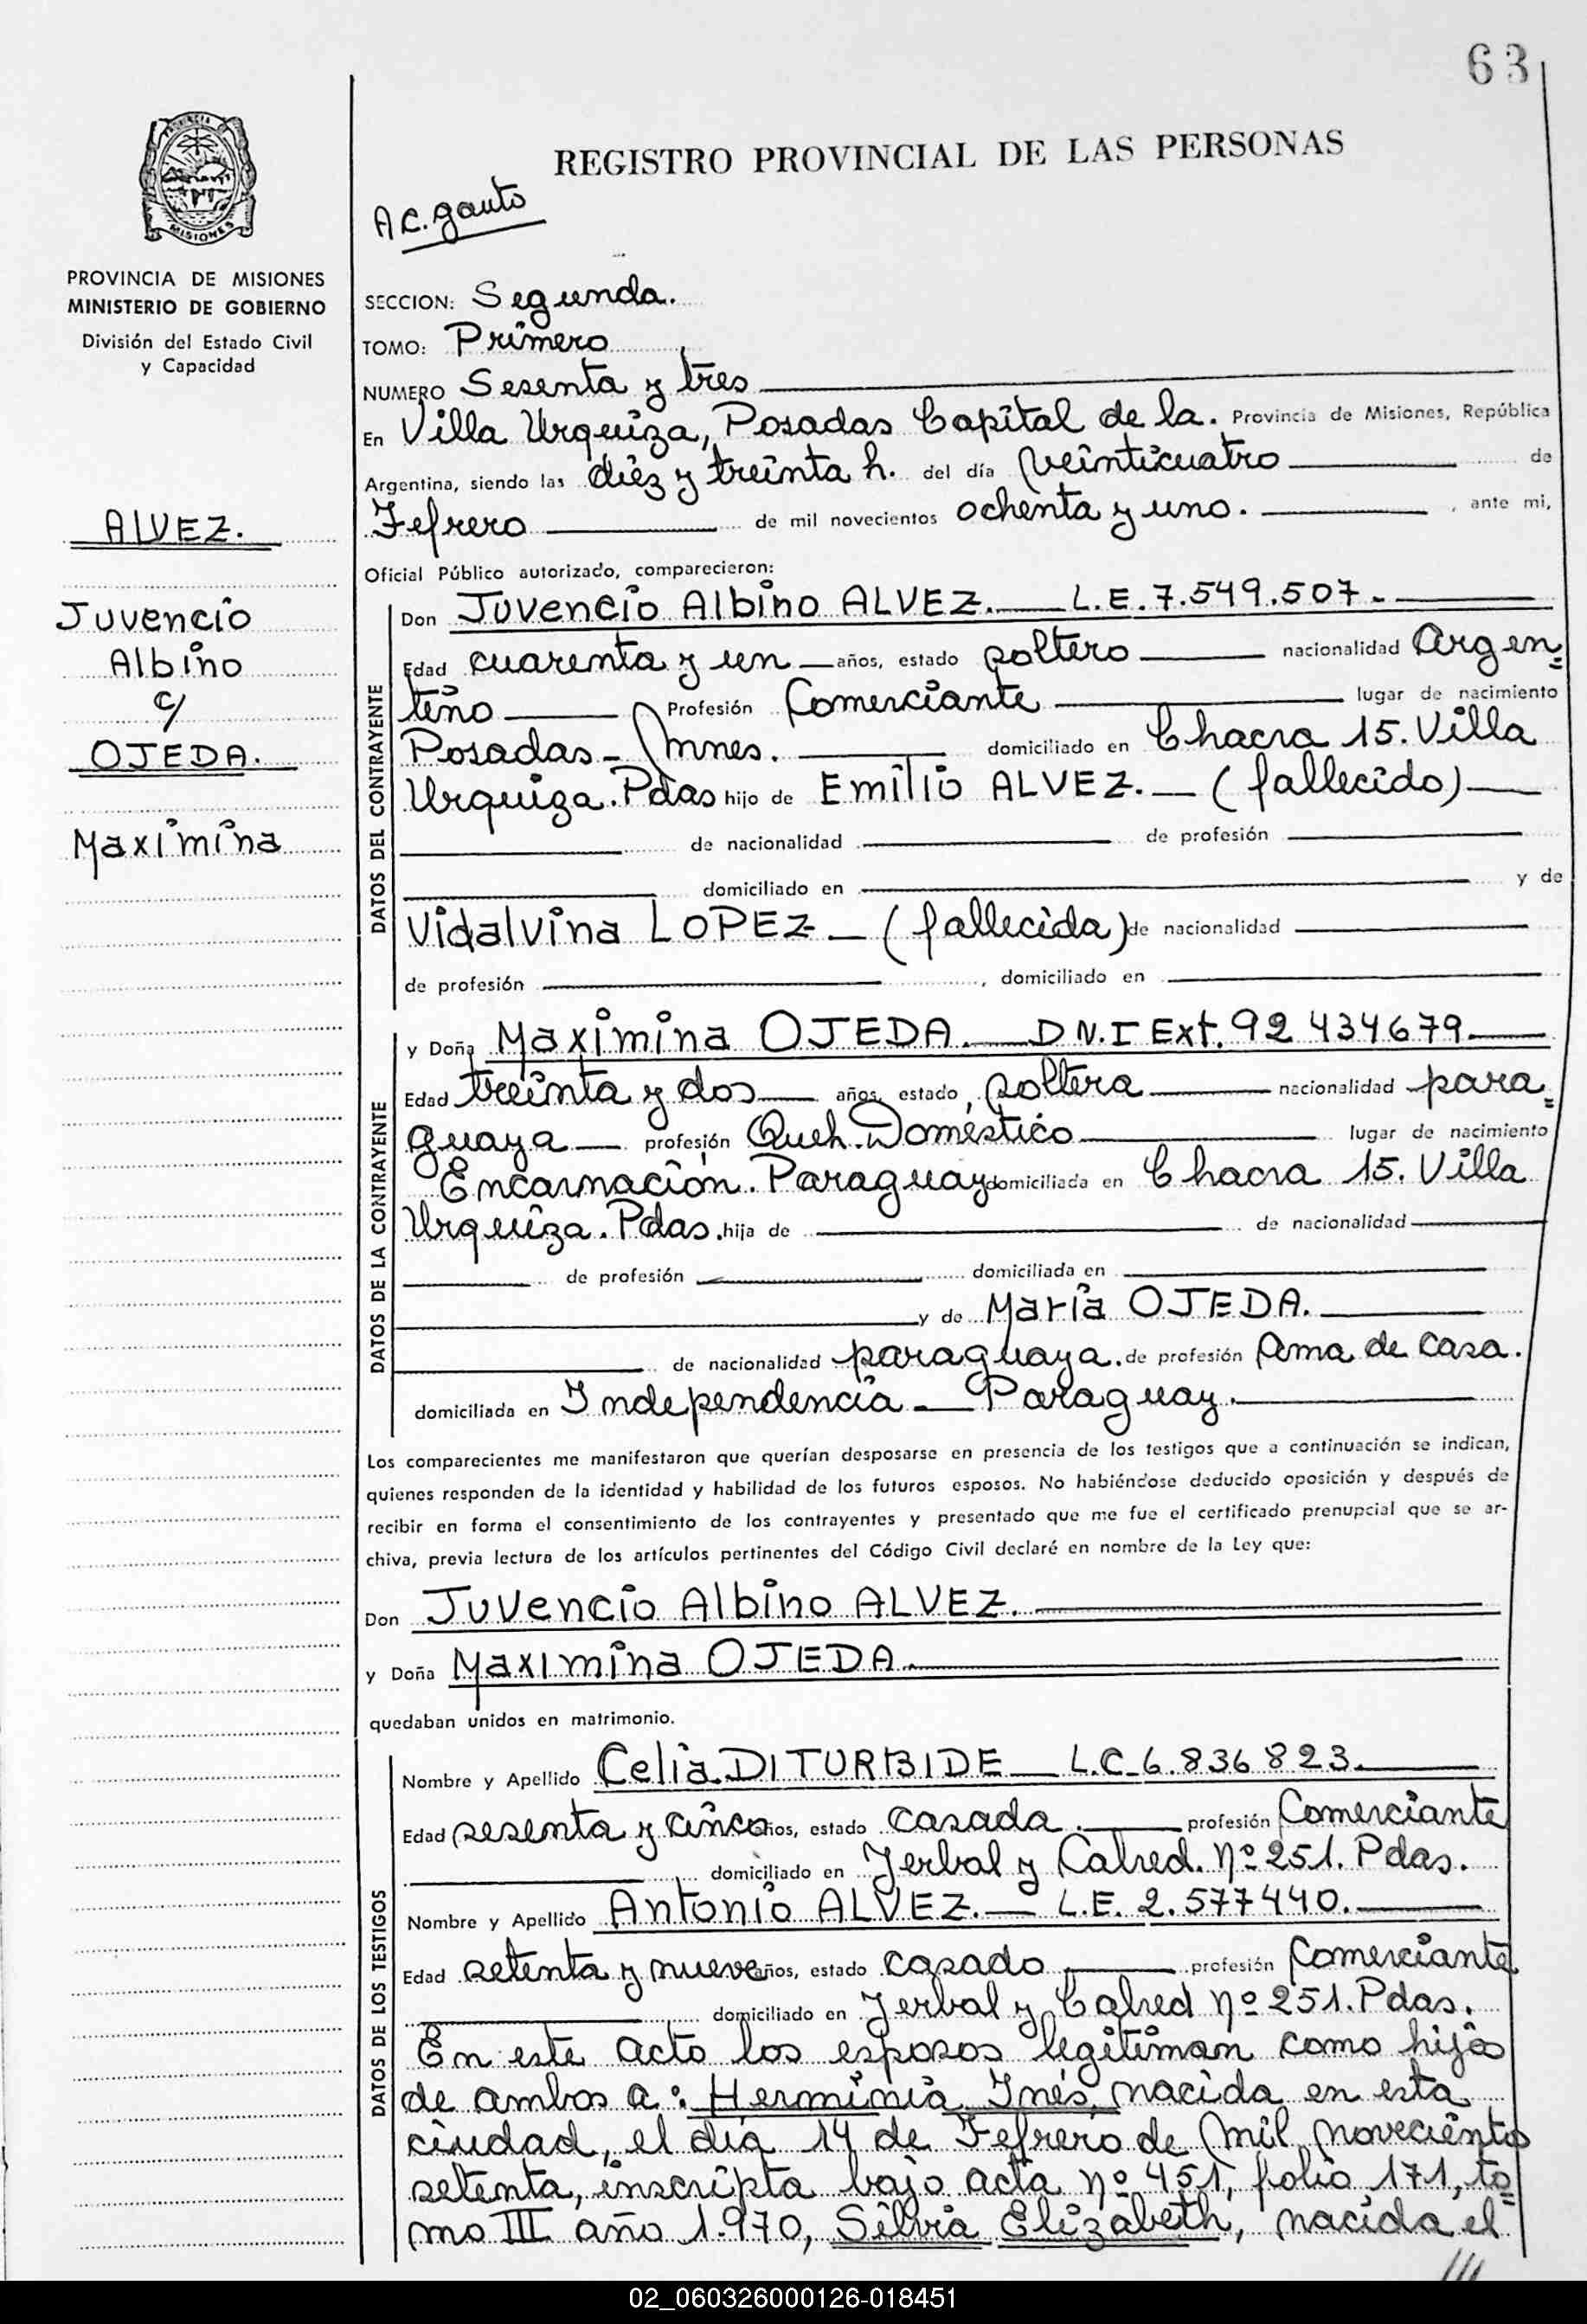 63
REGISTRO PROVINCIAL DE LAS PERSONAS
Ac. gauto
PROVINCIA DE MISIONES
MINISTERIO DE GOBIERNO
División del Estado Civil
y Capacidad
ALVEZ.
Juvencio
Albino
c/
OJEDA.
Maximina
SECCION: Segunda.
TOMO: Primero
NUMERO Sesenta y tres
En Villa Urquiza, Posadas Capital de la. Provincia de Misiones, República
Argentina, siendo las diez y treinta h. del día veinticuatro de
Febrero de mil novecientos ochenta y uno. , ante mi,
Oficial Público autorizado, comparecieron:
DATOS DEL CONTRAYENTE
Don Juvencio Albino ALVEZ. — L.E. 7.549.507.-
Edad cuarenta y un — años, estado soltero nacionalidad Argen=
tino Profesión Comerciante lugar de nacimiento
Posadas - Mnes. domiciliado en Chacra 15. Villa
Urquiza. Pdas hijo de Emilio ALVEZ. — (fallecido)
de nacionalidad de profesión
domiciliado en y de
Vidalvina LOPEZ — (fallecida) de nacionalidad
de profesión , domiciliado en
DATOS DE LA CONTRAYENTE
y Doña Maximina OJEDA. — D N.I Ext. 92 434679
Edad treinta y dos — años, estado, soltera nacionalidad para=
guaya — profesión Queh. Doméstico lugar de nacimiento
Encarnación. Paraguay domiciliada en Chacra 15. Villa
Urquiza. Pdas. hija de de nacionalidad
de profesión domiciliada en
y de María OJEDA.
de nacionalidad paraguaya. de profesión Ama de casa.
domiciliada en Independencia — Paraguay.
Los comparecientes me manifestaron que querían desposarse en presencia de los testigos que a continuación se indican,
quienes responden de la identidad y habilidad de los futuros esposos. No habiéndose deducido oposición y después de
recibir en forma el consentimiento de los contrayentes y presentado que me fue el certificado prenupcial que se ar-
chiva, previa lectura de los artículos pertinentes del Código Civil declaré en nombre de la Ley que:
Don Juvencio Albino ALVEZ.
y Doña Maximina OJEDA.
quedaban unidos en matrimonio.
DATOS DE LOS TESTIGOS
Nombre y Apellido Celia DITURBIDE — L.C. 6.836 823.
Edad sesenta y cinco años, estado casada. profesión Comerciante
domiciliado en Yerbal y Cabred. Nº 251. Pdas.
Nombre y Apellido Antonio ALVEZ. — L.E. 2.577440.
Edad setenta y nueve años, estado casado profesión Comerciante
domiciliado en Yerbal y Cabred Nº 251. Pdas.
En este acto los esposos legitiman como hijos
de ambos a: Herminia Inés, nacida en esta
ciudad, el día 14 de Febrero de mil novecientos
setenta, inscripta bajo acta nº 451, folio 171, to=
mo III año 1.970, Silvia Elizabeth, nacida el
///
02_060326000126-018451